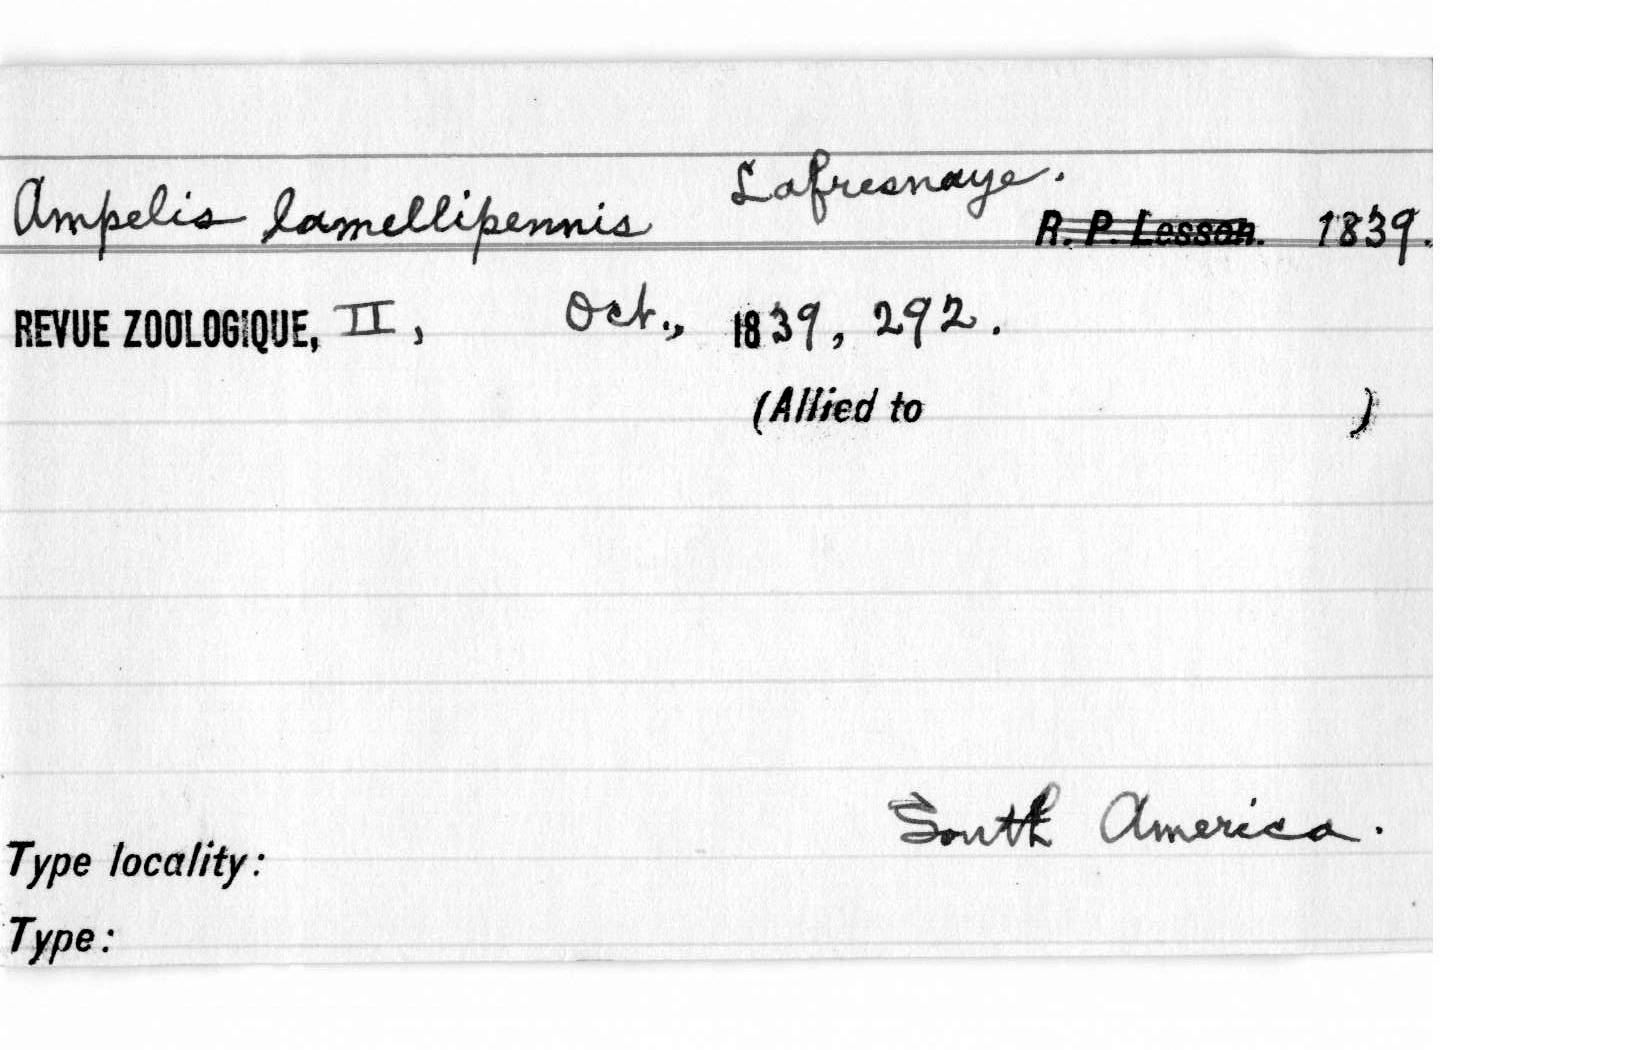 Ampelis lamellipennis Lafresnaye. R. P. Lesson. 1839.
REVUE ZOOLOGIQUE, II, Oct., 1839, 292.
(Allied to )
South America.
Type locality:
Type: